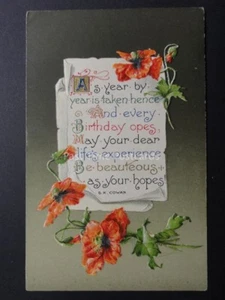 As year by
year is taken hence
And every
Birthday opes,
May your dear
life's experience
Be beauteous
as your hopes
S. K. COWAN